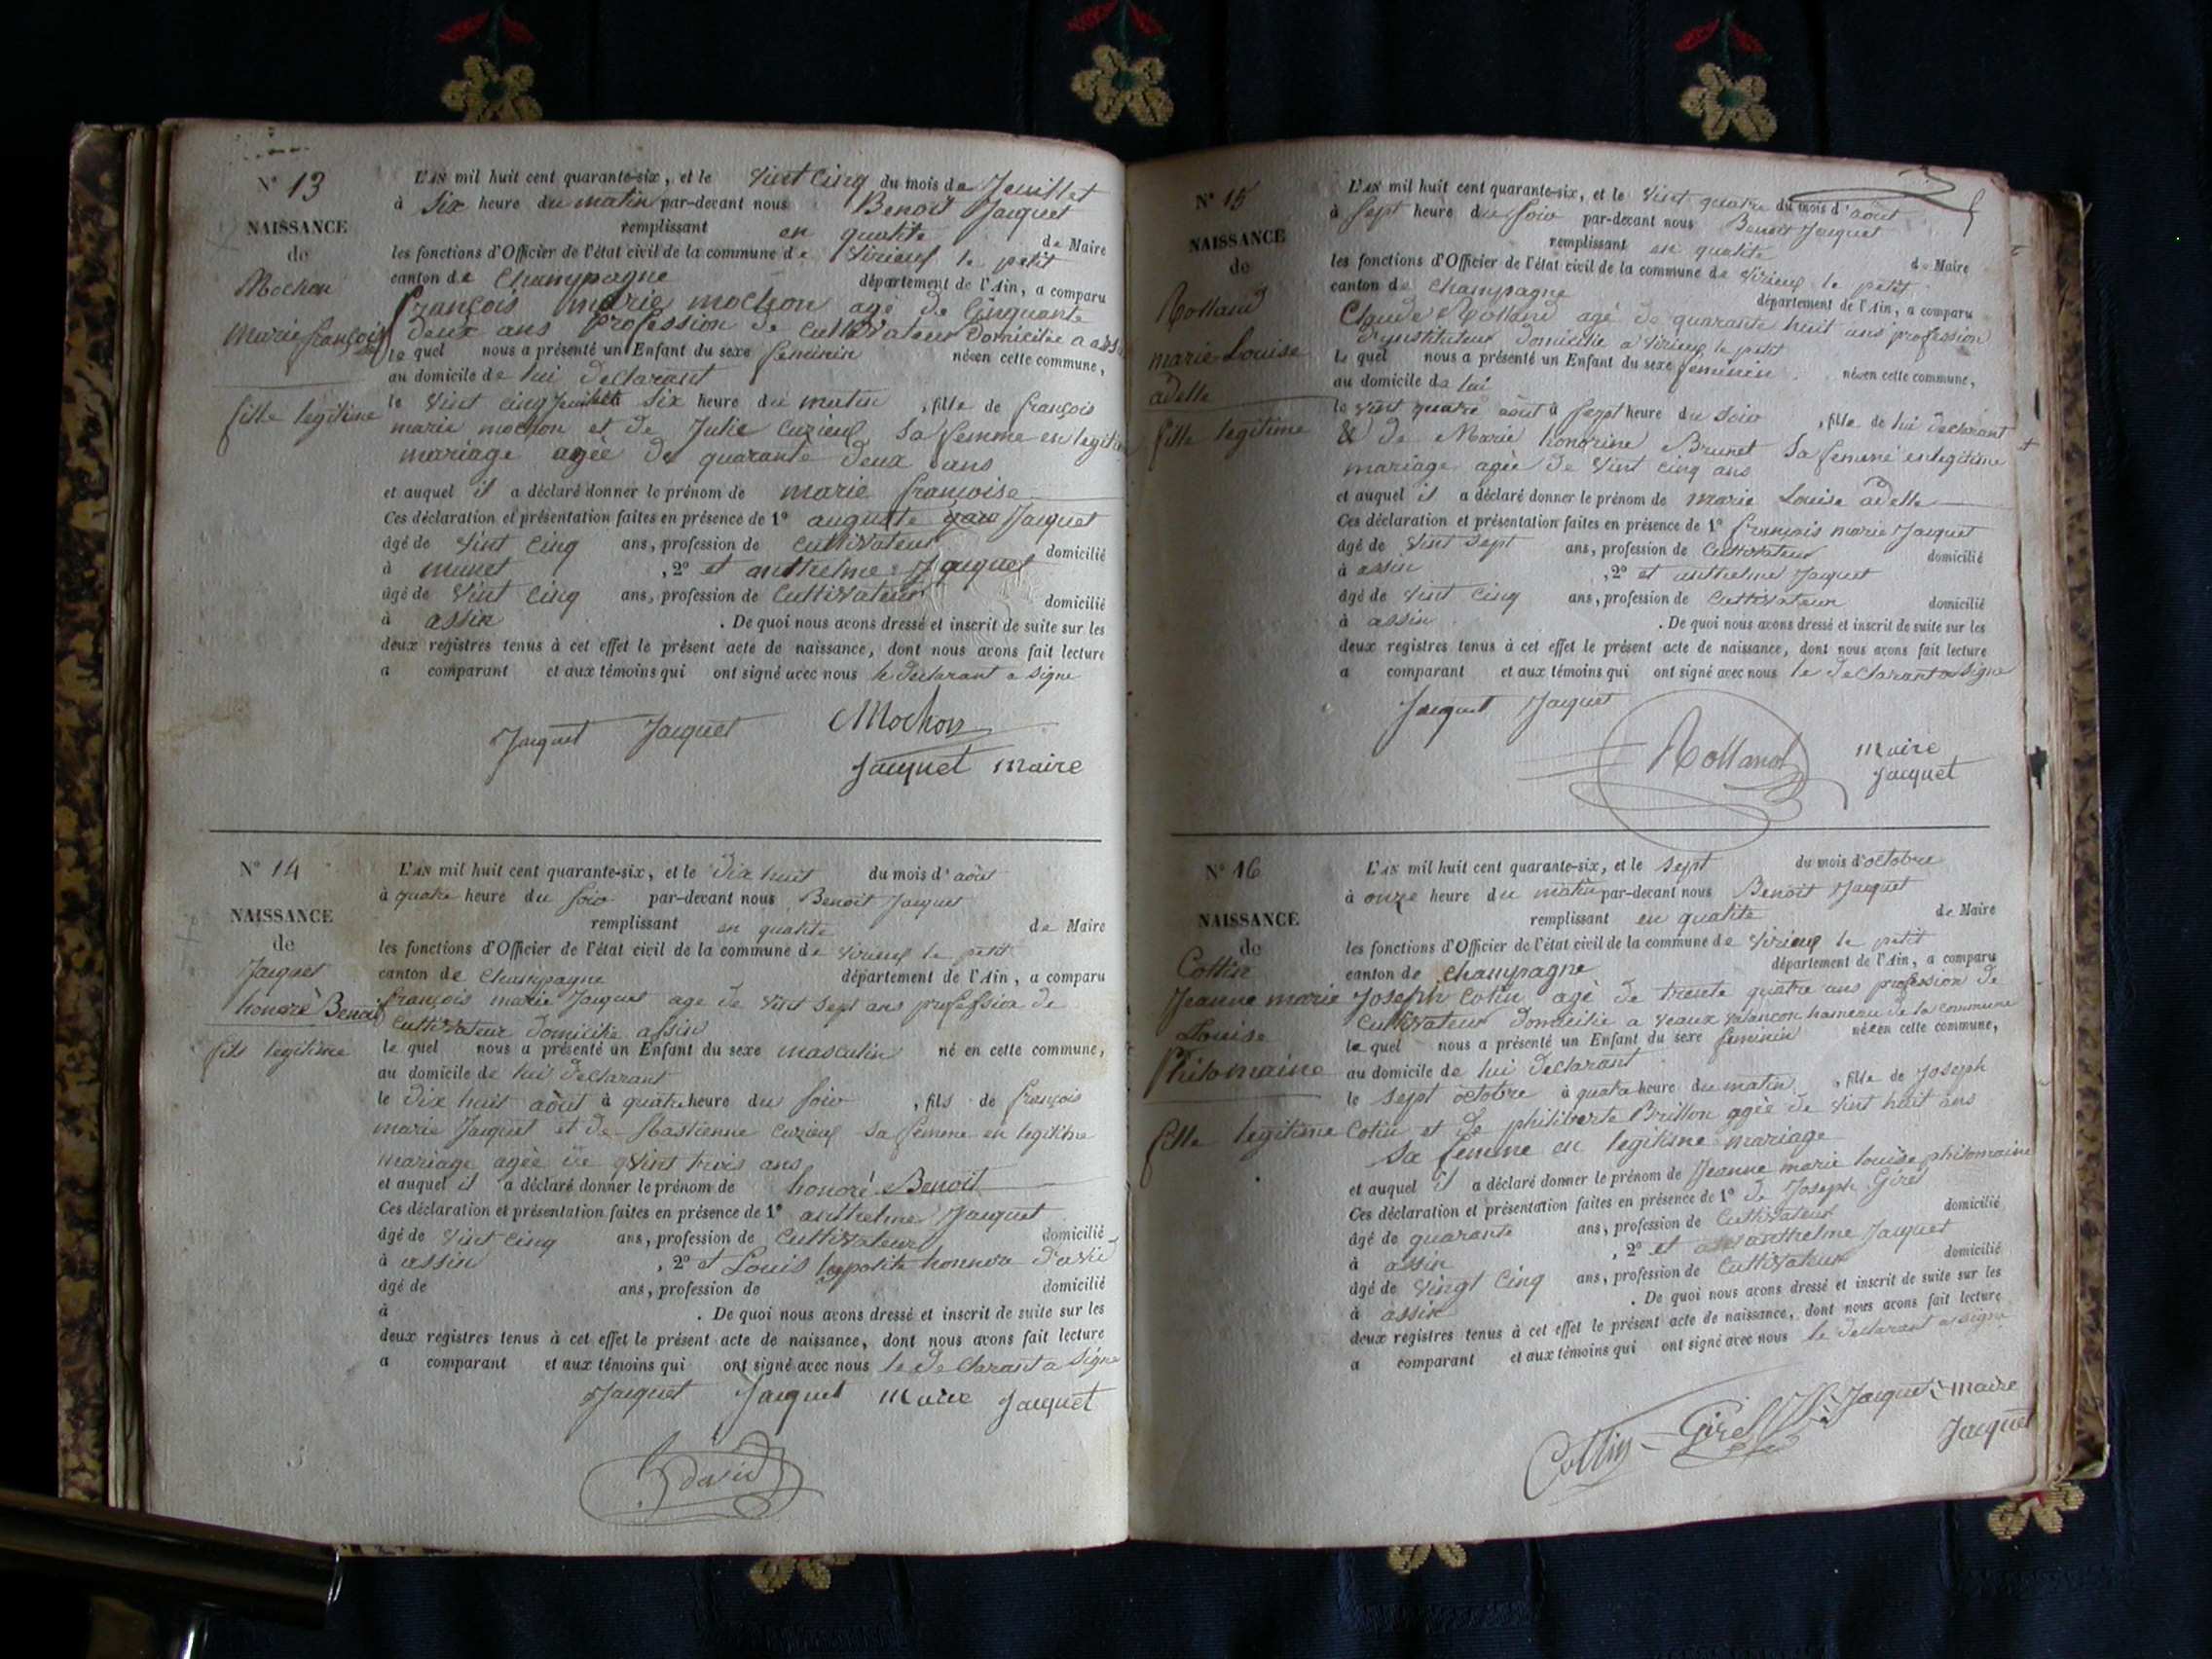 N° 13
NAISSANCE
de
Mochon
Marie françoise
fille legitime
L'AN mil huit cent quarante-six, et le vint cinq du mois de Jeuillet
à Six heure du matin par-devant nous Benoit Jacquet
remplissant en qualite de Maire
les fonctions d'Officier de l'état civil de la commune de Virieux le petit
canton de Champagne département de l'Ain, a comparu
françois marie mochon agé de Cinquante
deux ans profession de cultivateur domicilie a assin
le quel nous a présenté un Enfant du sexe feminin née en cette commune,
au domicile de lui declarant
le vint cinq Jeuillet à six heure du matin, fille de françois
marie mochon et de Julie Curieux Sa femme en legitime
mariage agée de quarante deux ans
et auquel il a déclaré donner le prénom de marie francoise
Ces déclaration et présentation faites en présence de 1° auguste Jacquet
âgé de vint cinq ans, profession de cultivateur domicilié
à munet, 2° et anthelme Jacquet
âgé de vint cinq ans, profession de Cultivateur domicilié
à assin. De quoi nous avons dressé et inscrit de suite sur les
deux registres tenus à cet effet le présent acte de naissance, dont nous avons fait lecture
a comparant et aux témoins qui ont signé avec nous le declarant a signe
Jacquet Jacquet Mochon
Jacquet maire
N° 14
NAISSANCE
de
Jacquet
honoré Benoit
fils legitime
L'AN mil huit cent quarante-six, et le dix huit du mois d'août
à quatre heure du soir par-devant nous Benoit Jacquet
remplissant en qualite de Maire
les fonctions d'Officier de l'état civil de la commune de Virieux le petit
canton de Champagne département de l'Ain, a comparu
françois marie Jacquet age de vint sept ans profession de
cultivateur domicilie assin
le quel nous a présenté un Enfant du sexe masculin né en cette commune,
au domicile de lui declarant
le dix huit août à quatre heure du soir, fils de françois
marie Jacquet et de Bastienne Curieux sa femme en legitime
mariage agée de vint trois ans
et auquel il a déclaré donner le prénom de honoré Benoit
Ces déclaration et présentation faites en présence de 1° anthelme Jacquet
âgé de vint cinq ans, profession de Cultivateur domicilié
à assin, 2° et Louis hyppolite david
âgé de ans, profession de domicilié
à . De quoi nous avons dressé et inscrit de suite sur les
deux registres tenus à cet effet le présent acte de naissance, dont nous avons fait lecture
a comparant et aux témoins qui ont signé avec nous le declarant a signe
Jacquet Jacquet maire Jacquet
david
N° 15
NAISSANCE
de
Rolland
marie Louise
adelle
fille legitime
L'AN mil huit cent quarante-six, et le vint quatre du mois d'août
à sept heure du soir par-devant nous Benoit Jacquet
remplissant en qualite de Maire
les fonctions d'Officier de l'état civil de la commune de Virieux le petit
canton de Champagne département de l'Ain, a comparu
Claude Rolland agé de quarante huit ans profession
d'ynstituteur domicilie a Virieux le petit
le quel nous a présenté un Enfant du sexe feminin née en cette commune,
au domicile de lui
le vint quatre août à sept heure du soir, fille de lui declarant
& de Marie honorine Brunet Sa femme en legitime
mariage agée de vint cinq ans
et auquel il a déclaré donner le prénom de marie Louise adelle
Ces déclaration et présentation faites en présence de 1° françois marie Jacquet
âgé de vint sept ans, profession de Cultivateur domicilié
à assin, 2° et anthelme Jacquet
âgé de vint cinq ans, profession de Cultivateur domicilié
à assin. De quoi nous avons dressé et inscrit de suite sur les
deux registres tenus à cet effet le présent acte de naissance, dont nous avons fait lecture
a comparant et aux témoins qui ont signé avec nous le declarant a signe
Jacquet Jacquet
Rolland maire
Jacquet
N° 16
NAISSANCE
de
Cottin
Jeanne marie
Louise
Philomaine
fille legitime
L'AN mil huit cent quarante-six, et le sept du mois d'octobre
à onze heure du matin par-devant nous Benoit Jacquet
remplissant en qualite de Maire
les fonctions d'Officier de l'état civil de la commune de Virieux le petit
canton de Champagne département de l'Ain, a comparu
Joseph Cotin agé de trente quatre ans profession de
cultivateur domicilie a vaux valancon hameau de la commune
le quel nous a présenté un Enfant du sexe feminin née en cette commune,
au domicile de lui declarant
le sept octobre à quatre heure du matin, fille de Joseph
Cotin et de philiberte Brillon agée de vint huit ans
sa femme en legitime mariage
et auquel il a déclaré donner le prénom de Jeanne marie louise philomaine
Ces déclaration et présentation faites en présence de 1° de Joseph Girel
âgé de quarante ans, profession de Cultivateur domicilié
à assin, 2° et anthelme Jacquet
âgé de vingt cinq ans, profession de Cultivateur domicilié
à assin. De quoi nous avons dressé et inscrit de suite sur les
deux registres tenus à cet effet le présent acte de naissance, dont nous avons fait lecture
a comparant et aux témoins qui ont signé avec nous le declarant a signe
Cottin Girel Jacquet maire
Jacquet